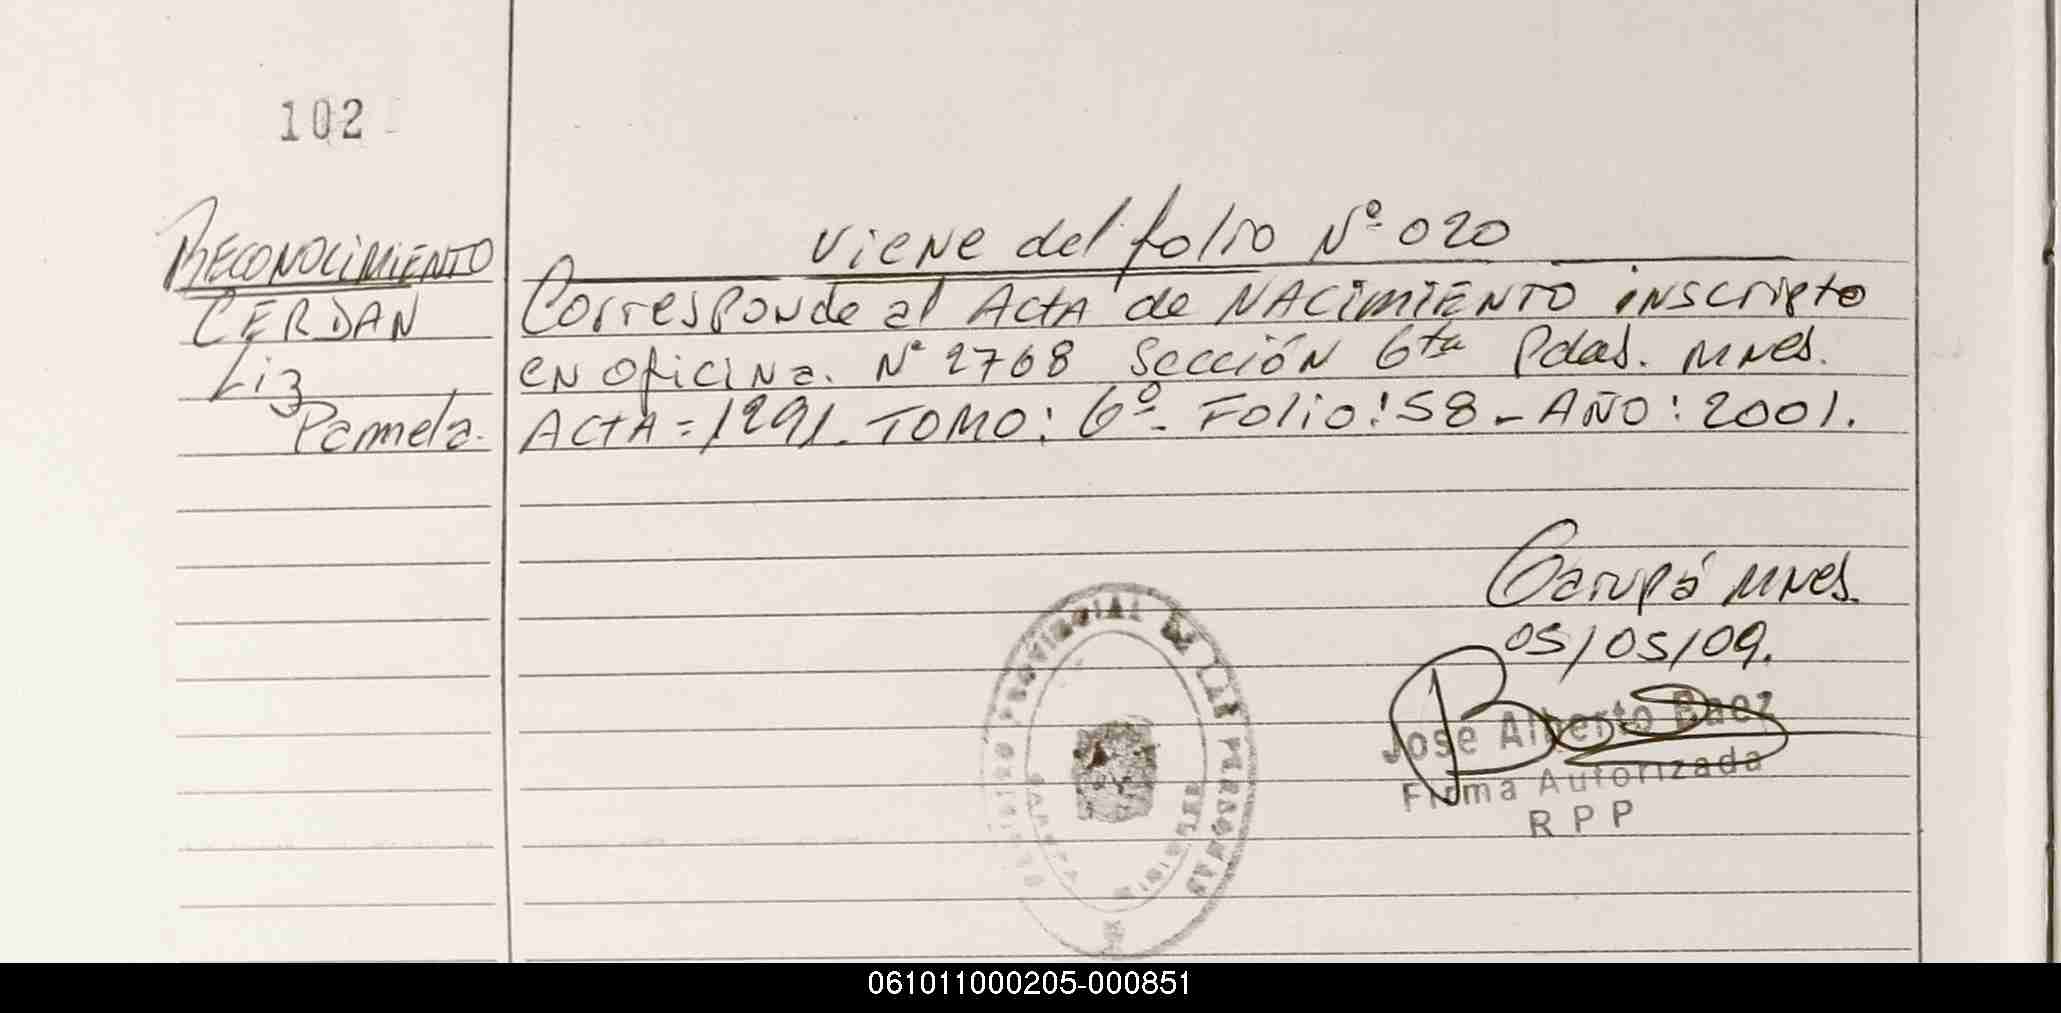 102
RECONOCIMIENTO
CERDAN
Liz
Pamela.
Viene del folio Nº 020
Corresponde al Acta de NACIMIENTO inscripto
en oficina. Nº 2768 Sección 6ta Pdas. Mnes.
ACTA = 1291. TOMO: 6º- Folio: 58 - AÑO: 2001.
Garupá Mnes.
05/05/09.
Jose Alberto Baez
Firma Autorizada
R P P
PROVINCIAL DE LAS PERSONAS
061011000205-000851